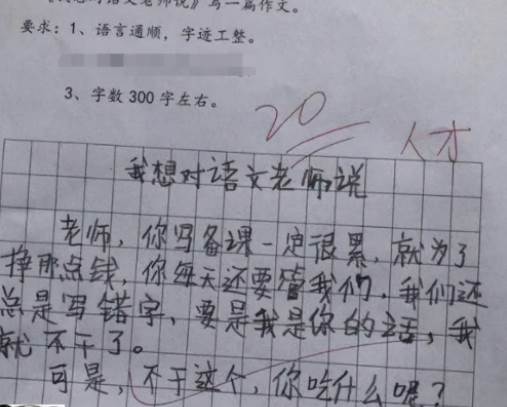 》写一篇作文。
要求：1、语言通顺，字迹工整。
3、字数 300 字左右。
20
人才
我想对语文老师说
老师，你写备课一定很累，就为了
挣那点钱，你每天还要管我们，我们还
总是写错字，要是我是你的话，我
就不干了。
可是，不干这个，你吃什么呢？